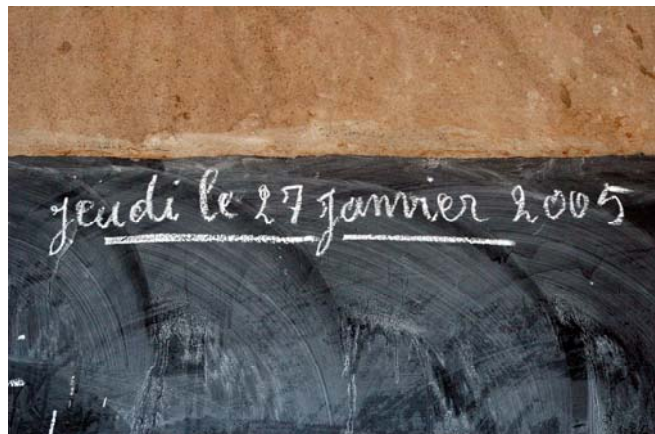 jeudi le 27 janvier 2005